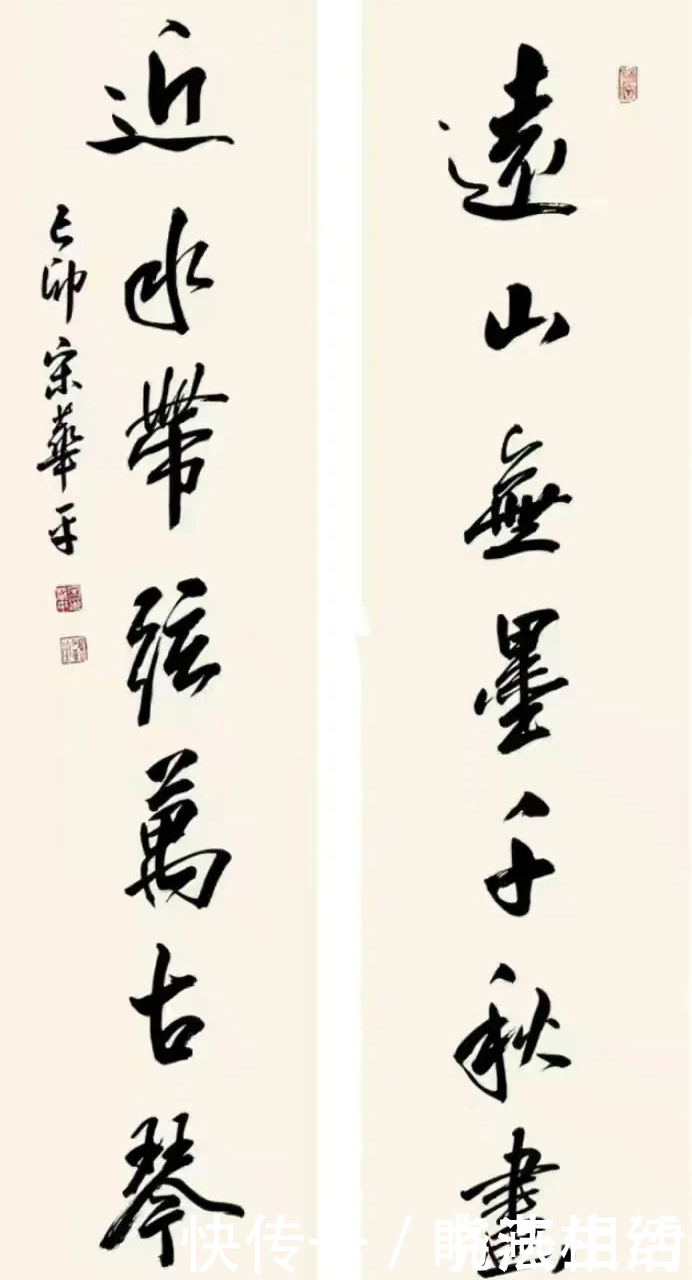 遠山無墨千秋畫
近水帶弦萬古琴
己卯宋華平
快传